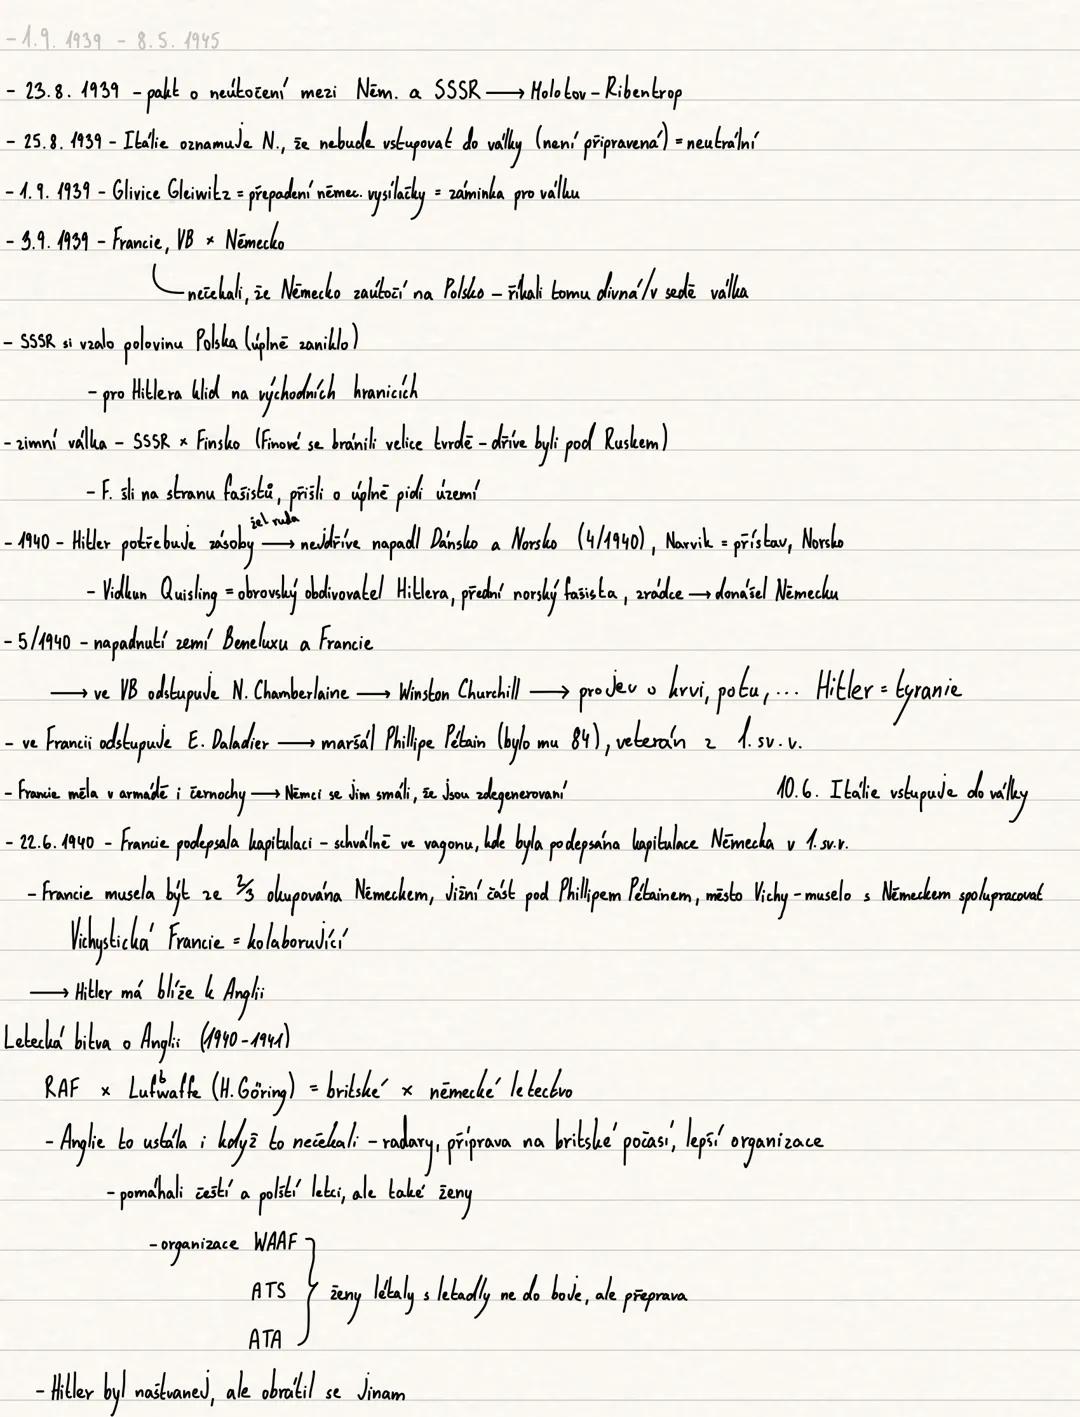 - 1.9. 1939 - 8.5. 1945
- 23.8. 1939 - pakt o neútočení mezi Něm. a SSSR ⟶ Molotov - Ribentrop
- 25.8. 1939 - Itálie oznamuje N., že nebude vstupovat do války (není připravená) = neutrální
- 1.9. 1939 - Glivice Gleiwitz = přepadení němec. vysílačky = záminka pro válku
- 3.9. 1939 - Francie, VB × Německo
nečekali, že Německo zaútočí na Polsko - říkali tomu divná/v sedě válka
- SSSR si vzalo polovinu Polska (úplně zaniklo)
- pro Hitlera klid na východních hranicích
- zimní válka - SSSR × Finsko (Finové se bránili velice tvrdě - dříve byli pod Ruskem)
- F. šli na stranu fašistů, přišli o úplně pidi území
žel ruda
- 1940 - Hitler potřebuje zásoby ⟶ nejdříve napadl Dánsko a Norsko (4/1940), Narvik = přístav, Norsko
- Vidkun Quisling = obrovský obdivovatel Hitlera, přední norský fašista, zrádce → donášel Německu
- 5/1940 - napadnutí zemí Beneluxu a Francie
⟶ ve VB odstupuje N. Chamberlaine ⟶ Winston Churchill ⟶ projev o krvi, potu, ... Hitler = tyranie
- ve Francii odstupuje E. Daladier ⟶ maršál Phillipe Pétain (bylo mu 84), veterán z 1. sv. v.
- Francie měla v armádě i černochy ⟶ Němci se jim smáli, že jsou zdegenerovaní 10.6. Itálie vstupuje do války
- 22.6. 1940 - Francie podepsala kapitulaci - schválně ve vagonu, kde byla podepsána kapitulace Německa v 1. sv.v.
- Francie musela být ze 2/3 okupována Německem, jižní část pod Phillipem Pétainem, město Vichy - muselo s Německem spolupracovat
Vichystická Francie = kolaborující
⟶ Hitler má blíže k Anglii
Letecká bitva o Anglii (1940-1941)
RAF × Luftwaffe (H. Göring) = britské × německé letectvo
- Anglie to ustála i když to nečekali - radary, příprava na britské počasí, lepší organizace
- pomáhali čeští a polští letci, ale také ženy
- organizace WAAF
ATS ženy létaly s letadly ne do boje, ale přeprava
ATA
- Hitler byl naštvanej, ale obrátil se jinam